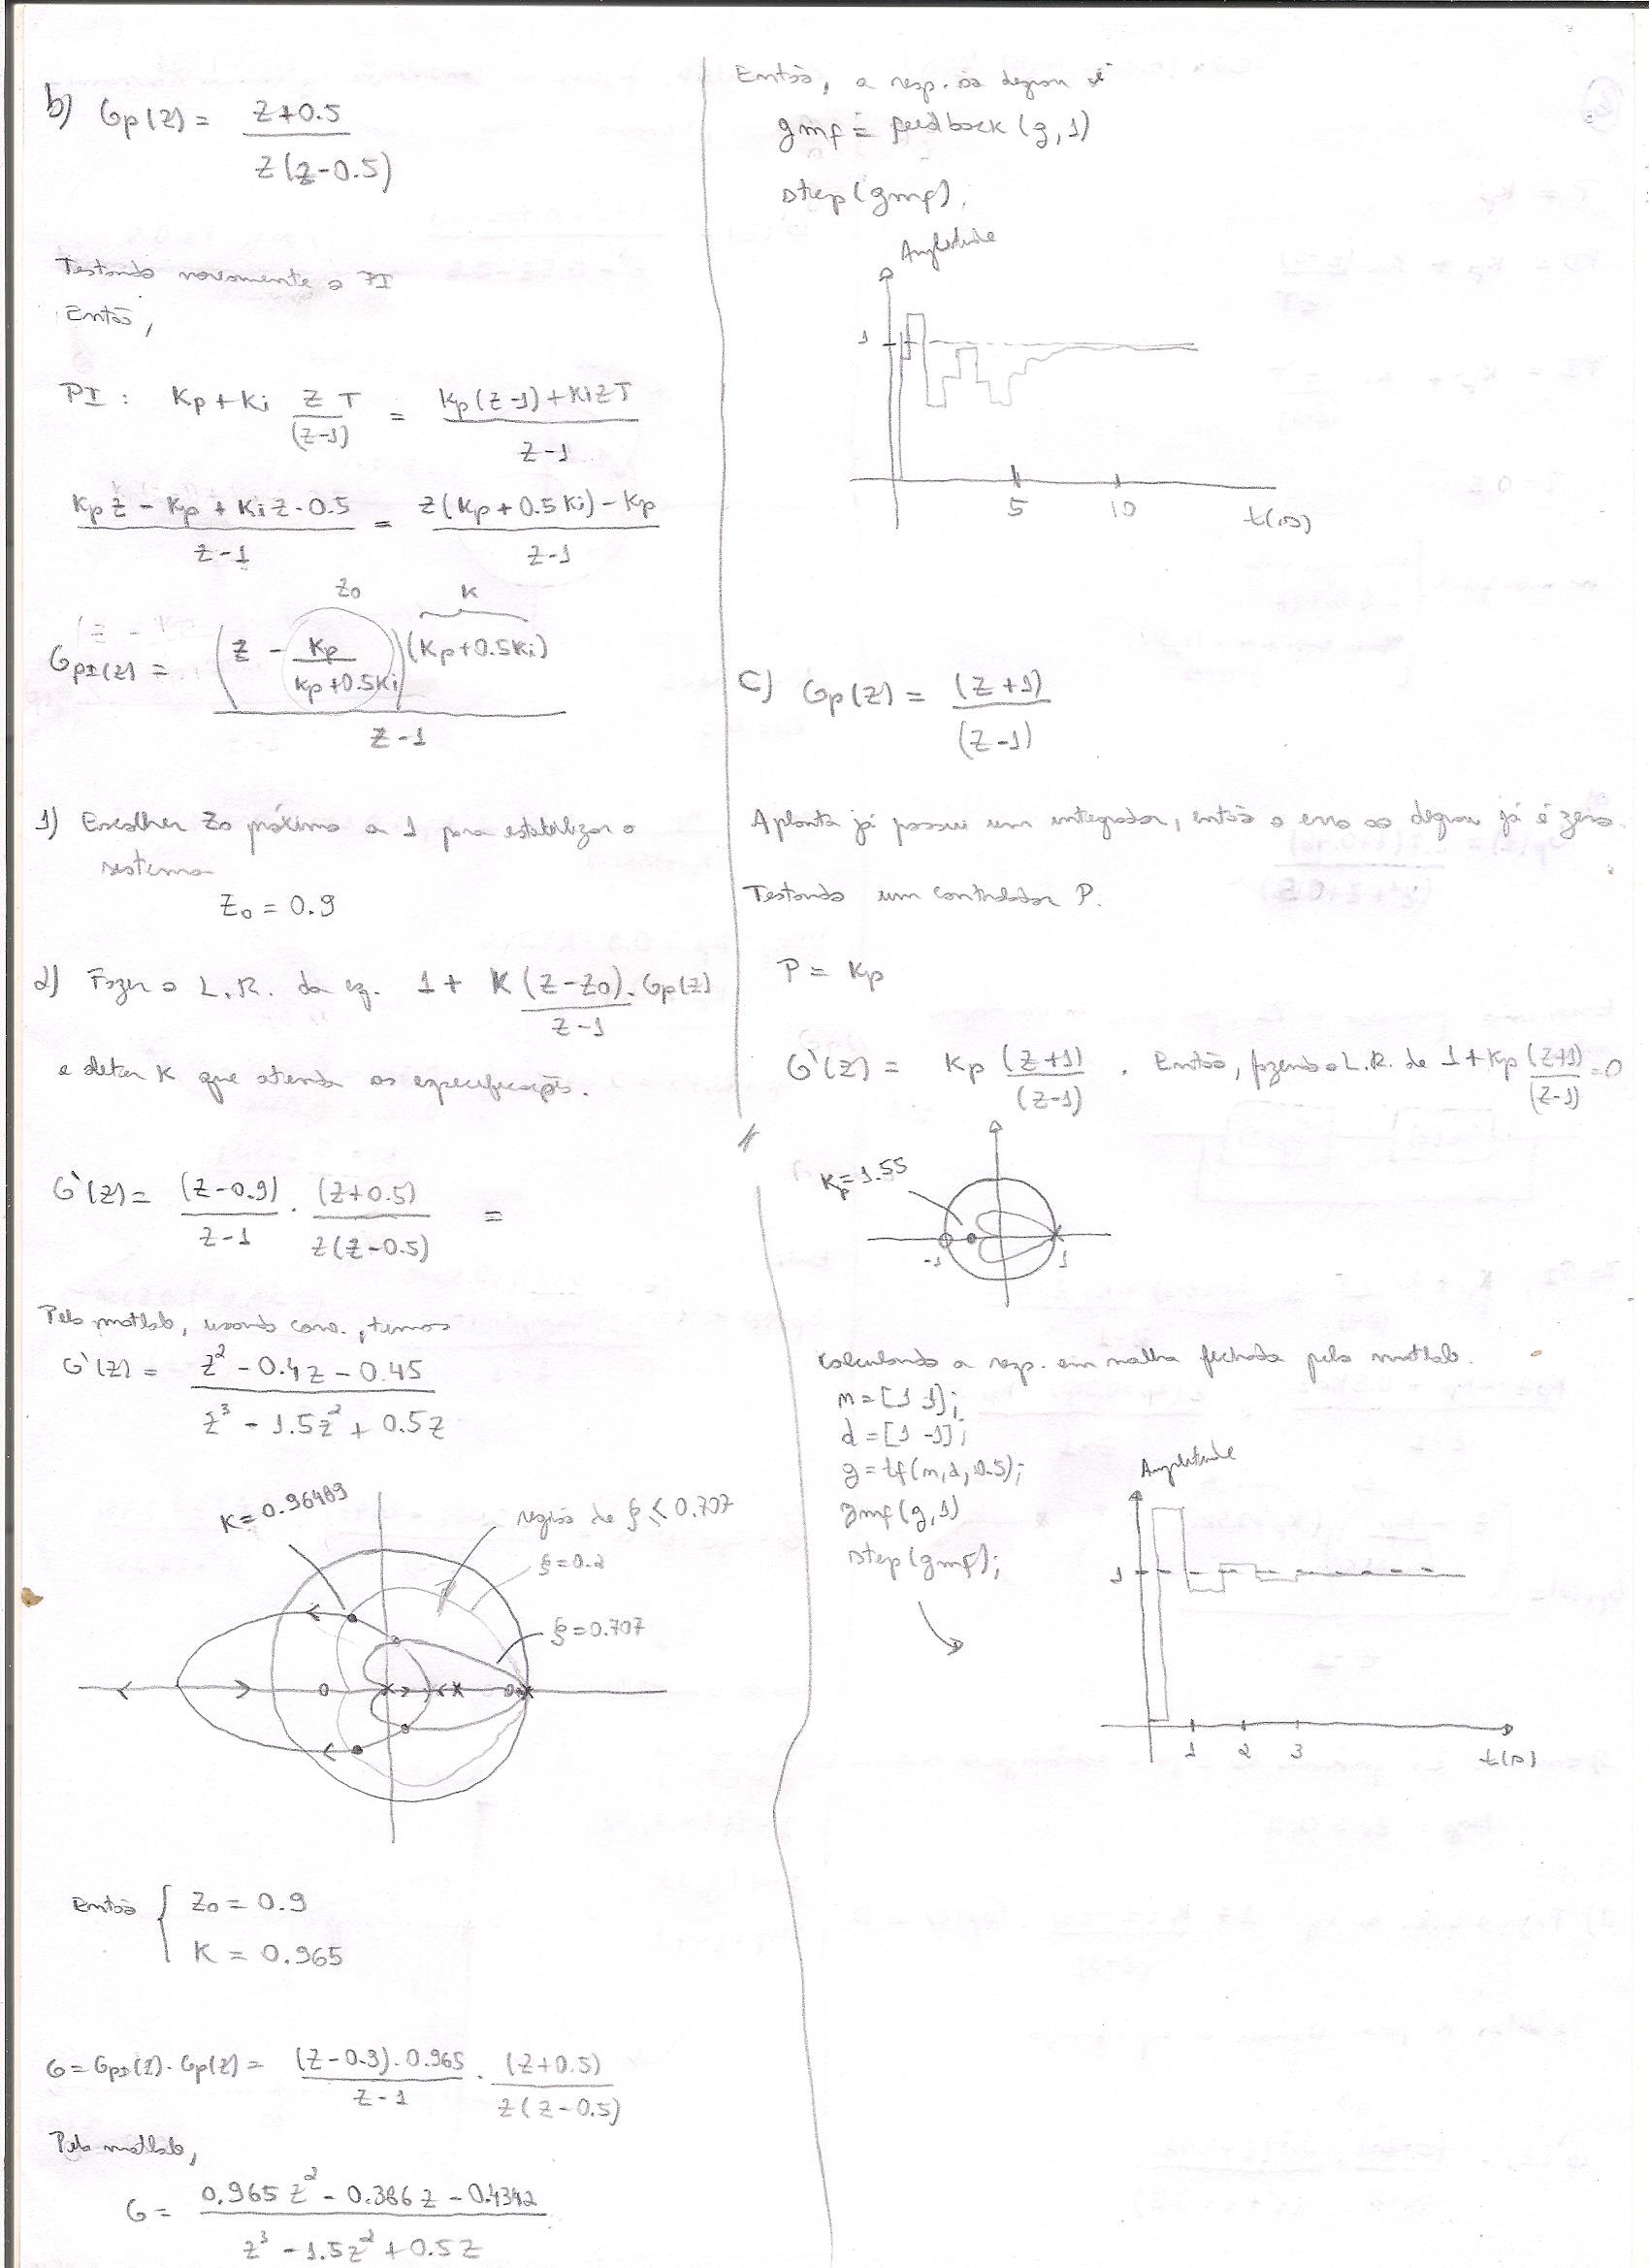 b) Gp(z) = z+0.5
z(z-0.5)
Testando novamente o PI
Então,
PI : Kp + Ki z T / (z-1) = Kp(z-1)+KizT / z-1
Kpz - Kp + Kiz·0.5 / z-1 = z(Kp+0.5Ki)-Kp / z-1
z0 K
GPI(z) = (z - Kp / Kp+0.5Ki)(Kp+0.5Ki)
z-1
1) Escolher z0 próximo a 1 para estabilizar o
sistema
z0 = 0.9
2) Fazer o L.R. da eq. 1 + K (z-z0) / z-1 . Gp(z)
e deter K que atenda as especificações.
G'(z) = (z-0.9) / z-1 . (z+0.5) / z(z-0.5) =
Pelo matlab, usando conv., temos
G'(z) = z² - 0.4z - 0.45
z³ - 1.5z² + 0.5z
K=0.96489
região de ξ ≤ 0.707
ξ=0.2
ξ=0.707
Então { z0 = 0.9
K = 0.965
G = GPI(z) . Gp(z) = (z-0.9).0.965 / z-1 . (z+0.5) / z(z-0.5)
Pelo matlab,
G = 0.965z² - 0.386z - 0.4342
z³ - 1.5z² + 0.5z
Então, a resp. ao degrau é
gmf = feedback(g,1)
step(gmf);
Amplitude
1
5 10 t(s)
C) Gp(z) = (z+1)
(z-1)
A planta já possui um integrador, então o erro ao degrau já é zero.
Testando um controlador P.
P = Kp
G'(z) = Kp (z+1) / (z-1) . Então, fazendo o L.R. de 1+Kp (z+1) / (z-1) = 0
Kp=1.55
-1 1
Calculando a resp. em malha fechada pelo matlab.
n=[1 1];
d=[1 -1];
g=tf(n,d,0.5);
gmf(g,1)
step(gmf);
Amplitude
1
1 2 3 t(s)